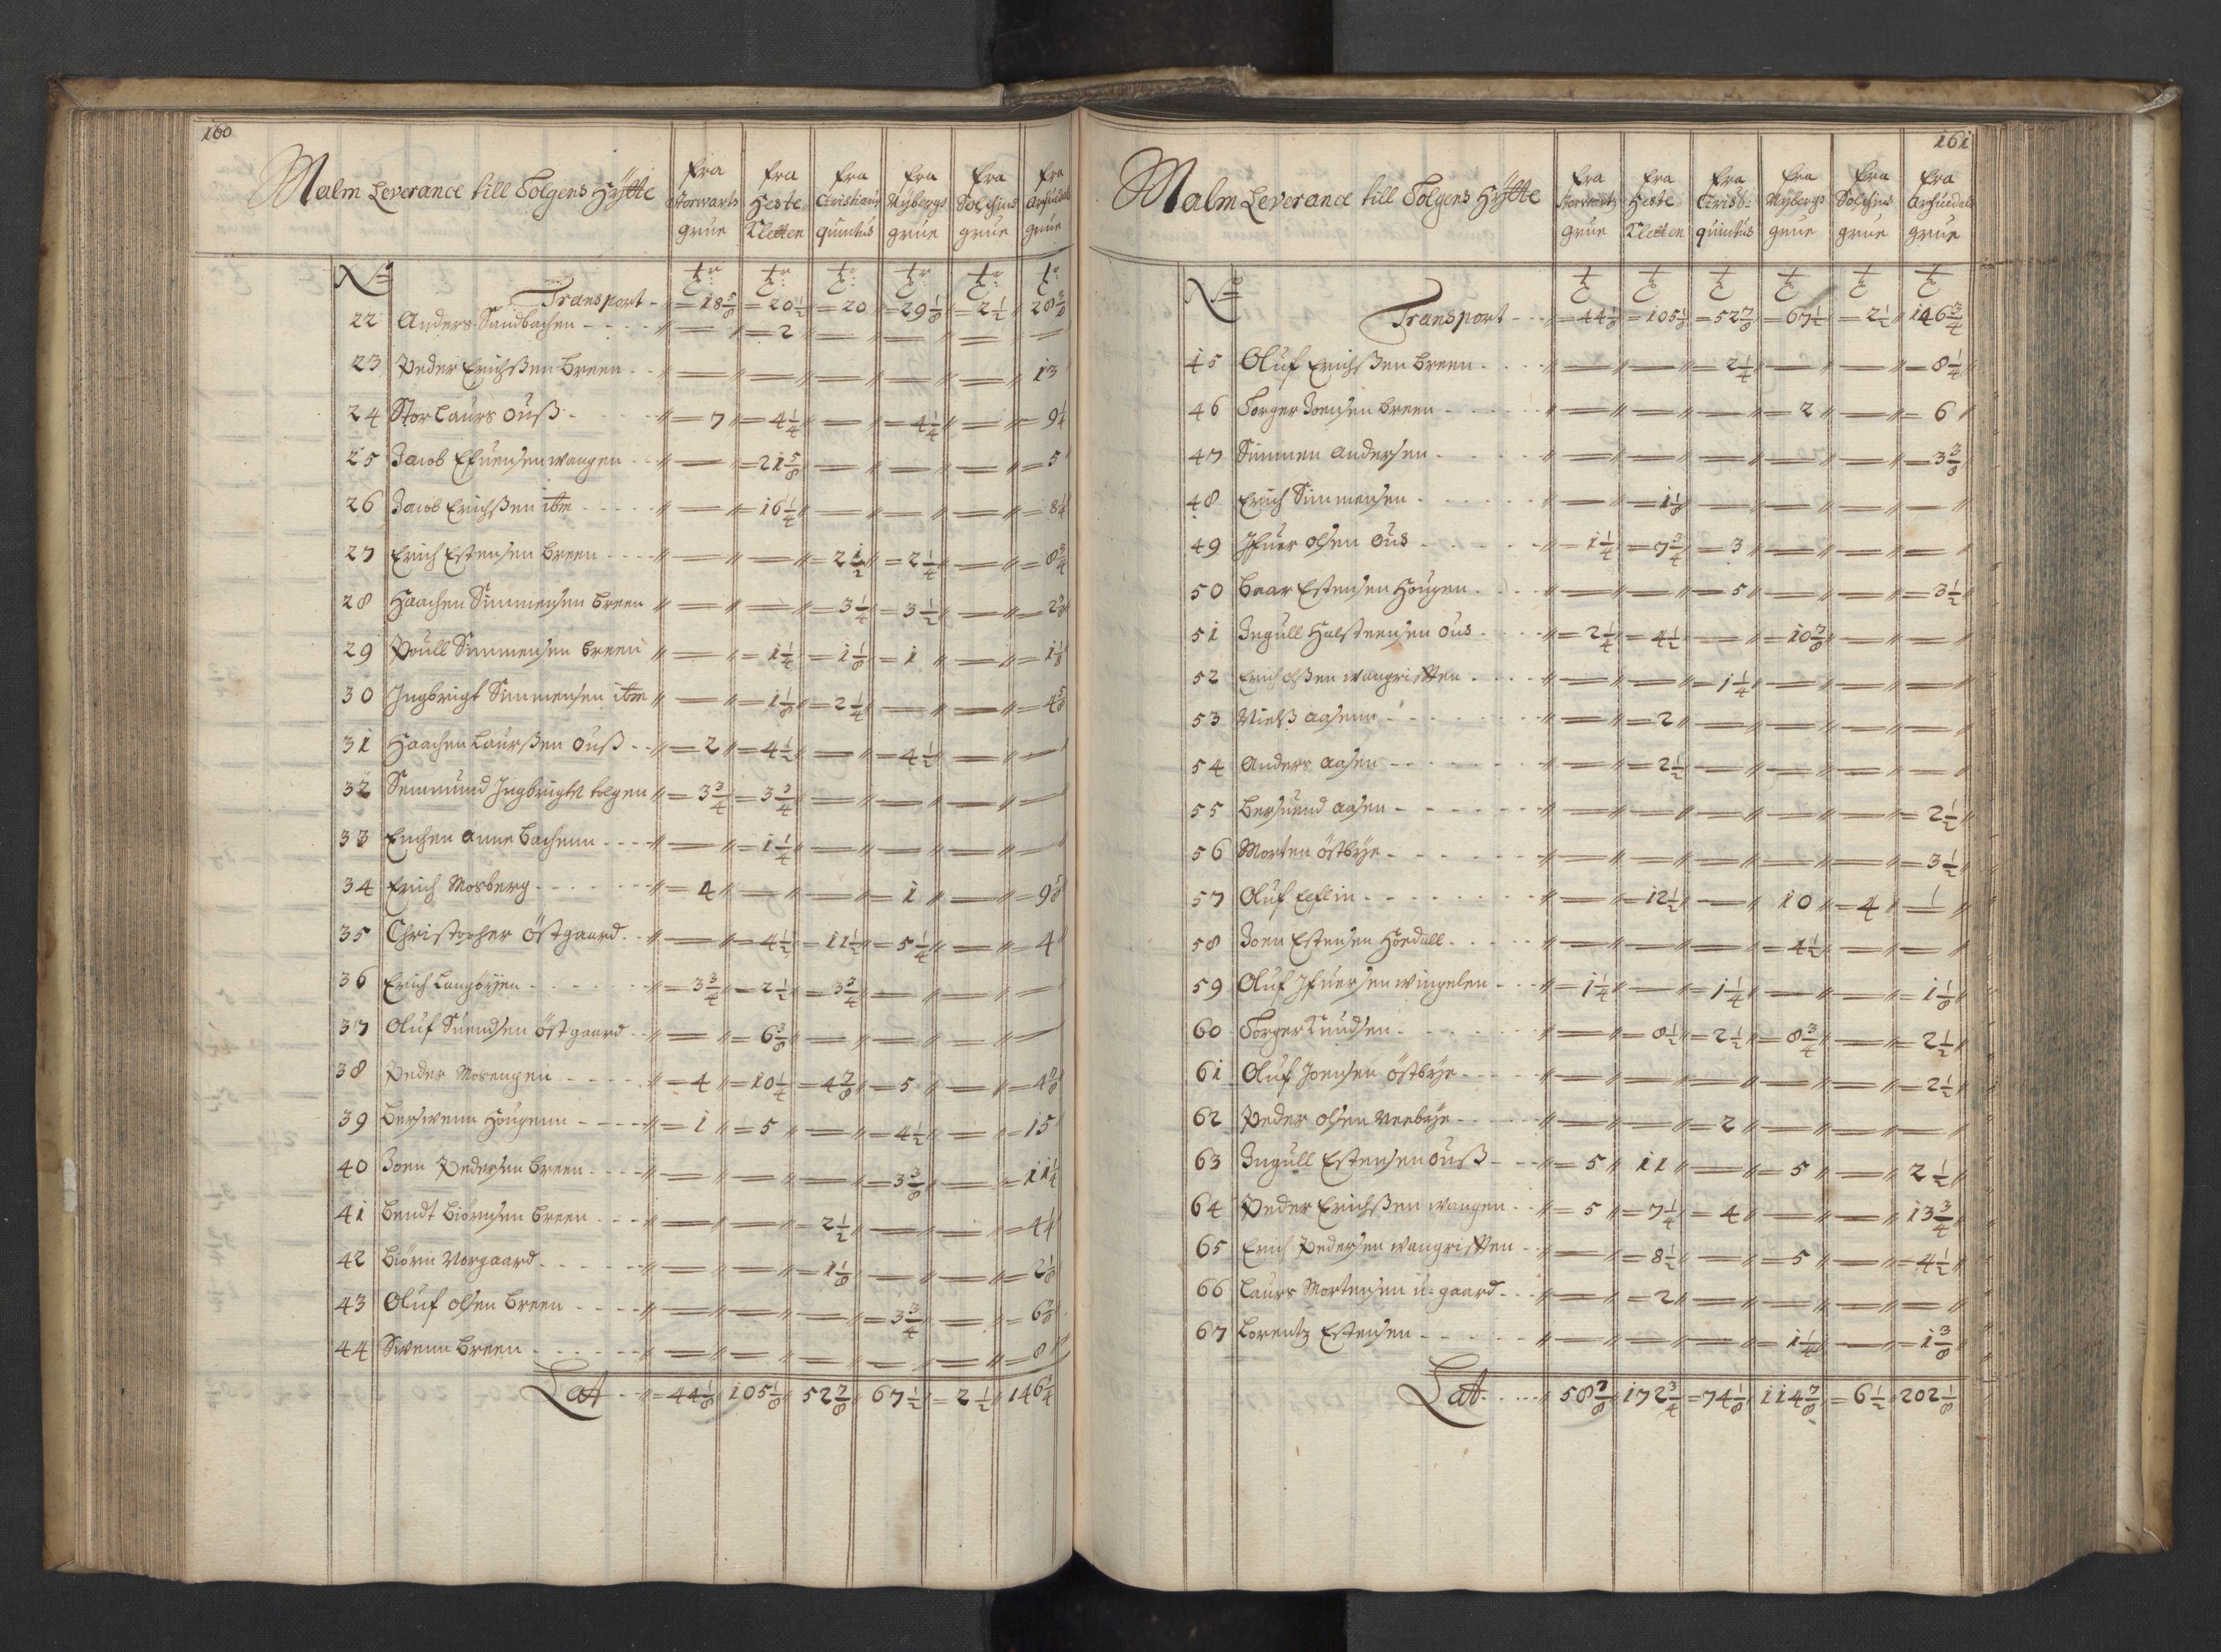 160
Malm Leverance till Tolgens Hÿtte
fra Storwarts grue
fra Heste Kletten
fra Cristians quintus
fra Nÿbergs grue
fra Solschins grue
fra Arfuedals grue
No
Transport - = 18 5/8 = 20 1/2 = 20 = 29 1/8 = 2 1/2 28 3/8
22 Anders Sandbachen - - - - — = 2 — — — —
23 Peder Erichßen Breen - - — — — — — 13
24 Stor Laurs Ouß - - - - = 7 = 4 1/4 — = 4 1/4 — = 9 1/4
25 Jacob Efuensen wangen - - — = 21 5/8 — — — = 5
26 Jacob Erichßen itm - - - - — = 16 1/4 — — — = 8 1/4
27 Erich Estensen Breen - - - - — — = 2 1/2 = 2 1/4 — = 8 3/4
28 Haachen Simmensen Breen — — = 3 1/4 = 3 1/2 — = 2 7/8
29 Poull Simmensen Breen — = 1 1/4 = 1 1/8 = 1 — = 1 1/8
30 Ingbrigt Simmensen itm — = 1 1/8 = 2 1/4 — — = 4 5/8
31 Haachen Laurßen Ouß - - = 2 = 4 1/2 — = 4 1/2 — —
32 Semmund Ingbrigts tolgen = 3 3/4 = 3 3/4 — — — —
33 Enchen Anne Bachenn - - - - — = 1 1/4 — — — —
34 Erich Mosberg - - - - = 4 — — = 1 — = 9 5/8
35 Christopher Östgaard - - — = 4 1/2 = 11 1/2 = 5 1/4 — = 4
36 Erich Langöÿen - - - - = 3 3/4 = 2 1/2 = 3 3/4 — — —
37 Oluf Suendsen östgaard - - — = 6 3/8 — — — —
38 Peder Mosengen - - - - = 4 = 10 1/4 = 4 7/8 = 5 — = 4 7/8
39 Berswenn Hougenn - - - - = 1 = 5 — = 4 1/2 — = 15
40 Joen Pedersen Breen - - - - — — — = 3 3/8 — = 11 1/4
41 Bendt Biörnsen Breen - - - — — = 2 1/2 — — = 4 1/4
42 Biörn Norgaard - - - - — — = 1 1/8 — — = 2 1/8
43 Oluf olsen Breen - - - - — — — = 3 3/4 — = 6 7/8
44 Swenn Breen - - - - — — — — — = 8
Lat - - = 44 1/8 105 1/8 52 7/8 67 1/2 = 2 1/2 146 3/4
161
Malm Leverance till Tolgens Hÿtte
fra Storwarts grue
fra Heste Kletten
fra Crist: quintus
fra Nÿbergs grue
fra Solschins grue
fra Arfuedals grue
No
Transport - - = 44 1/8 = 105 1/8 = 52 7/8 = 67 1/2 = 2 1/2 146 3/4
45 Oluf Erichßen Breen - - - — — = 2 1/4 — — = 8 1/4
46 Torger Joensen Breen - - - - — — — = 2 — = 6
47 Simmen Andersen - - - - — — — — — = 3 3/8
48 Erich Simmensen - - - - — = 1 1/8 — — — —
49 Ifuer olsen Ous - - - - = 1 1/4 = 7 3/4 = 3 — — —
50 Baar Estensen Hougen - - - — — = 5 — — = 3 1/2
51 Ingull Halsteensen Ous - - - = 2 1/4 = 4 1/2 — = 10 7/8 — —
52 Erich olßen wangristen - - - — — = 1 1/4 — — —
53 Nielß Aasenn - - - - — = 2 — — — —
54 Anders Aasen - - - - — = 2 1/2 — — — —
55 Bersuend Aasen - - - - — — — — — = 2 1/2
56 Morten östbÿe - - - - — — — — — = 3 1/2
57 Oluf Eeflin - - - - — = 12 1/2 — 10 = 4 —
58 Joen Estensen Hoedall - - - — — — = 4 1/2 — —
59 Oluf Ifuersen wingelen - - - = 1 1/4 — = 1 1/4 — — = 1 1/8
60 Torger Knudsen - - - - — = 8 1/2 = 2 1/2 = 8 3/4 — = 2 1/2
61 Oluf Joensen östbÿe - - - - — — — — — = 2 1/2
62 Peder olsen Neebÿe - - - - — — = 2 — — —
63 Ingull Estensen Ouß - - - = 5 11 — = 5 — 2 1/2
64 Peder Erichßen wangen - - = 5 = 7 1/4 = 4 — — 13 3/4
65 Erich Pedersen wangristen - - — = 8 1/2 — = 5 — = 4 1/2
66 Laurs Mortensen u=gaard - - - — = 2 — — — —
67 Lorentz Estensen - - - - — — — = 1 1/4 — = 1 3/8
Lat - - - - 58 7/8 172 3/4 = 74 1/8 114 7/8 = 6 1/2 202 1/8